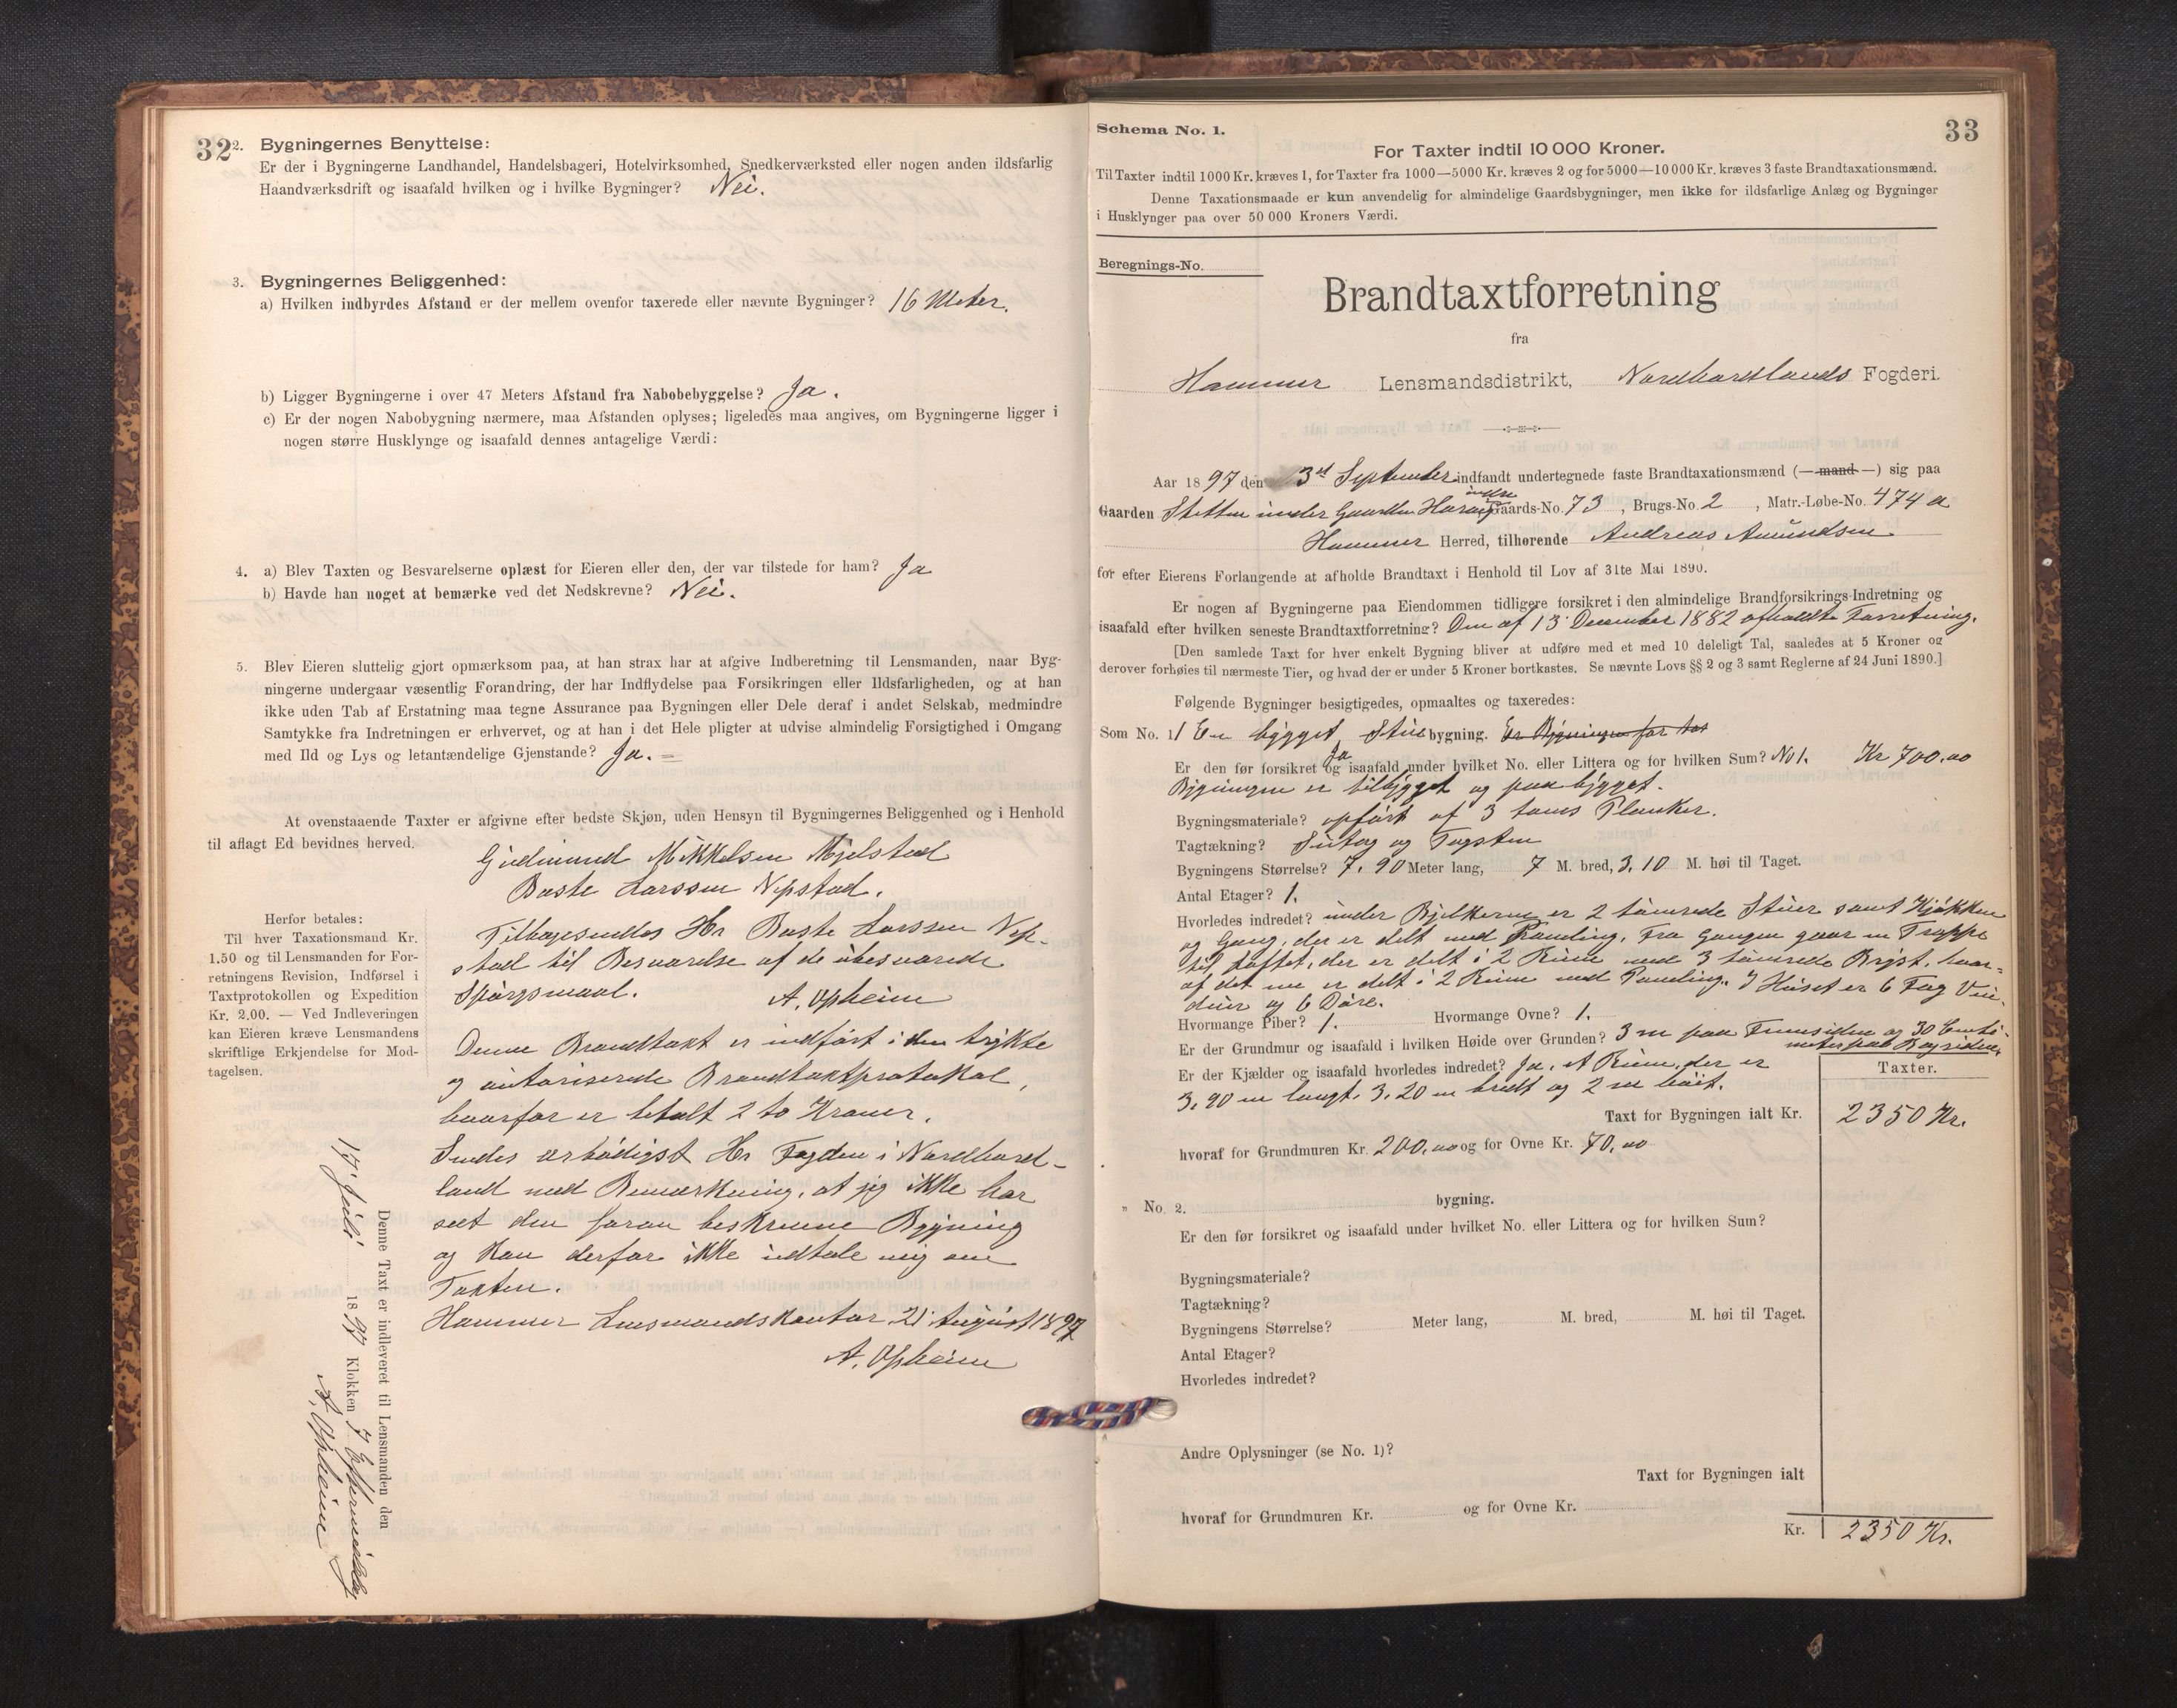 32
2. Bygningernes Benyttelse:
Er der i Bygningerne Landhandel, Handelsbageri, Hotelvirksomhed, Snedkerværksted eller nogen anden ildsfarlig
Haandværksdrift og isaafald hvilken og i hvilke Bygninger? Nei.
3. Bygningernes Beliggenhed:
a) Hvilken indbyrdes Afstand er der mellem ovenfor taxerede eller nævnte Bygninger? 16 Meter.
b) Ligger Bygningerne i over 47 Meters Afstand fra Nabobebyggelse? Ja.
c) Er der nogen Nabobygning nærmere, maa Afstanden oplyses; ligeledes maa angives, om Bygningerne ligger i
nogen større Husklynge og isaafald dennes antagelige Værdi:
4. a) Blev Taxten og Besvarelserne oplæst for Eieren eller den, der var tilstede for ham? Ja
b) Havde han noget at bemærke ved det Nedskrevne? Nei.
5. Blev Eieren sluttelig gjort opmærksom paa, at han strax har at afgive Indberetning til Lensmanden, naar Byg-
ningerne undergaar væsentlig Forandring, der har Indflydelse paa Forsikringen eller Ildsfarligheden, og at han
ikke uden Tab af Erstatning maa tegne Assurance paa Bygningen eller Dele deraf i andet Selskab, medmindre
Samtykke fra Indretningen er erhvervet, og at han i det Hele pligter at udvise almindelig Forsigtighed i Omgang
med Ild og Lys og letantændelige Gjenstande? Ja. =
At ovenstaaende Taxter er afgivne efter bedste Skjøn, uden Hensyn til Bygningernes Beliggenhed og i Henhold
til aflagt Ed bevidnes herved.
Gudmund Mikkelsen Mjelstad
Baste Larssen Nepstad.
Tilbagesendes Hr Baste Larssen Nep-
stad til Besvarelse af de ubesvarede
Spørgsmaal. A. Opheim
Denne Brandtaxt er indført i den trykte
og autoriserede Brandtaxtprotokol,
hvorfor er betalt 2 to Kroner.
Sendes ærbødigst Hr Fogden i Nordhord-
land med Bemærkning, at jeg ikke har
seet den foran beskrevne Bygning
og kan derfor ikke udtale mig om
Taxten.
Hammer Lensmandskontor 21 August 1897
A. Opheim
Herfor betales:
Til hver Taxationsmand Kr.
1.50 og til Lensmanden for For-
retningens Revision, Indførsel i
Taxtprotokollen og Expedition
Kr. 2.00. — Ved Indleveringen
kan Eieren kræve Lensmandens
skriftlige Erkjendelse for Mod-
tagelsen.
Denne Taxt er indleveret til Lensmanden den
17 Juli 1897 Klokken 7 Eftermiddag
A. Opheim
33
Schema No. 1.
For Taxter indtil 10 000 Kroner.
Til Taxter indtil 1000 Kr. kræves 1, for Taxter fra 1000—5000 Kr. kræves 2 og for 5000—10 000 Kr. kræves 3 faste Brandtaxationsmænd.
Denne Taxationsmaade er kun anvendelig for almindelige Gaardsbygninger, men ikke for ildsfarlige Anlæg og Bygninger
i Husklynger paa over 50 000 Kroners Værdi.
Beregnings-No.
Brandtaxtforretning
fra
Hammer Lensmandsdistrikt, Nordhordlands Fogderi.
Aar 1897 den 3d September indfandt undertegnede faste Brandtaxationsmænd (—mand—) sig paa
Gaarden Sletten under Gaarden indre Gaards-No. 73, Brugs-No. 2, Matr.-Løbe-No. 474 a
Hammer Herred, tilhørende Andreas Amundsen
for efter Eierens Forlangende at afholde Brandtaxt i Henhold til Lov af 31te Mai 1890.
Er nogen af Bygningerne paa Eiendommen tidligere forsikret i den almindelige Brandforsikrings-Indretning og
isaafald efter hvilken seneste Brandtaxtforretning? Den af 13 December 1882 afholdte Forretning.
[Den samlede Taxt for hver enkelt Bygning bliver at udføre med et med 10 deleligt Tal, saaledes at 5 Kroner og
derover forhøies til nærmeste Tier, og hvad der er under 5 Kroner bortkastes. Se nævnte Lovs §§ 2 og 3 samt Reglerne af 24 Juni 1890.]
Følgende Bygninger besigtigedes, opmaaltes og taxeredes:
Som No. 1 1 En bygget Stuebygning. Er Bygningen før tax
Er den før forsikret og isaafald under hvilket No. eller Littera og for hvilken Sum? Ja No 1. Kr 700.00
Bygningen er tilbygget og paabygget.
Bygningsmateriale? opført af 3 toms Planker.
Tagtækning? Sutag og Tagsten
Bygningens Størrelse? 7.90 Meter lang, 7 M. bred, 3.10 M. høi til Taget.
Antal Etager? 1.
Hvorledes indredet? under Bjelkerne er 2 tømrede Stuer samt Kjøkken
og Gang, der er delt med Paneling. Fra Gangen gaar en Trappe
til Loftet, der er delt i 2 Rum med 3 tømrede Brøst, hvor-
af det ene er delt i 2 Rum med Paneling. I Huset er 6 Fag Vin-
duer og 6 Døre.
Hvormange Piber? 1. Hvormange Ovne? 1.
Er der Grundmur og isaafald i hvilken Høide over Grunden? 3 m paa Fremsiden og 30 Centi-
meter paa Bagsiden.
Er der Kjælder og isaafald hvorledes indredet? Ja, et Rum, der er
3.90 m langt, 3.20 m bredt og 2 m høit.
Taxter.
Taxt for Bygningen ialt Kr. 2350 Kr.
hvoraf for Grundmuren Kr. 200.00 og for Ovne Kr. 70.00
" No. 2. bygning.
Er den før forsikret og isaafald under hvilket No. eller Littera og for hvilken Sum?
Bygningsmateriale?
Tagtækning?
Bygningens Størrelse? Meter lang, M. bred, M. høi til Taget.
Antal Etager?
Hvorledes indredet?
Andre Oplysninger (se No. 1)?
Taxt for Bygningen ialt
hvoraf for Grundmuren Kr. og for Ovne Kr.
Kr. 2350 Kr.